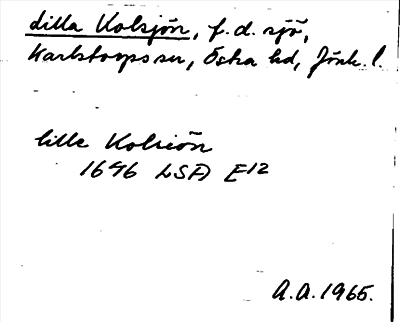 Lilla Kolsjön, f.d. sjö,
Karlstorps sn, Östra hd, Jönk. l.
lille Kolsiön
1696 LSA E12
A.A. 1965.